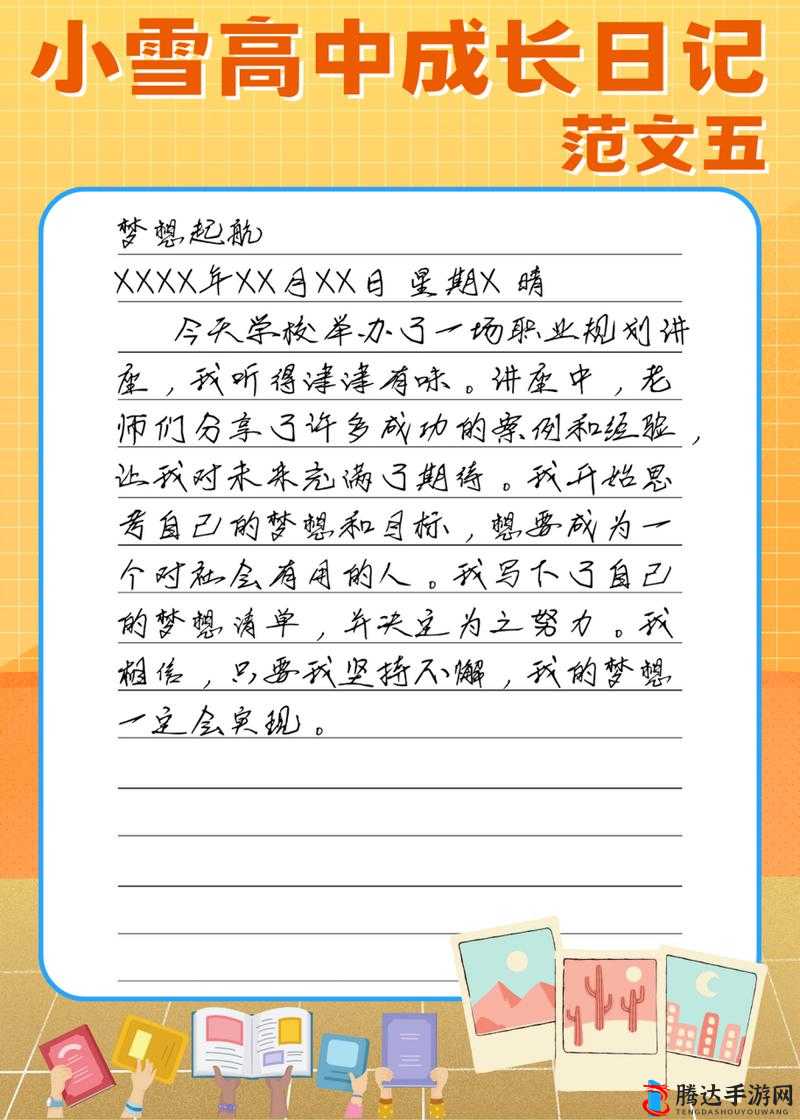 小雪高中成长日记
范文五
梦想起航
XXXX年XX月XX日 星期X 晴
今天学校举办了一场职业规划讲
座，我听得津津有味。讲座中，老
师们分享了许多成功的案例和经验，
让我对未来充满了期待。我开始思
考自己的梦想和目标，想要成为一
个对社会有用的人。我写下了自己
的梦想清单，并决定为之努力。我
相信，只要我坚持不懈，我的梦想
一定会实现。
腾达手游网
TENGDASHOUYOUWANG